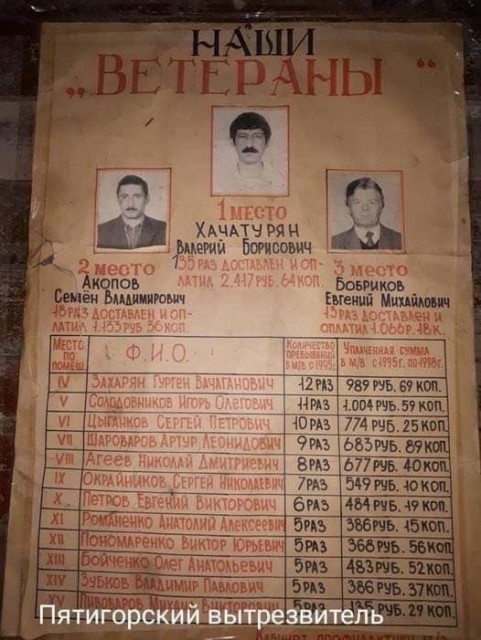 НАШИ
„ВЕТЕРАНЫ“
1 место
Хачатурян
Валерий Борисович
135 раз доставлен и оп-
латил 2.417 руб. 64 коп.
2 место
Акопов
Семён Владимирович
18 раз доставлен и оп-
латил 1.133 руб 36 коп.
3 место
Бобриков
Евгений Михайлович
13 раз доставлен и
оплатил 1.066 р. 18 к.
Место по помещ.
Ф.И.О.
Количество пребываний в м/в с 1995г.
Уплаченная сумма в м/в с 1995г. по 1998г.
IV Захарян Гурген Вачаганович 12 раз 989 руб. 69 коп.
V Солодовников Игорь Олегович 11 раз 1.004 руб. 59 коп.
VI Цыганков Сергей Петрович 10 раз 774 руб. 25 коп.
VII Шароваров Артур Леонидович 9 раз 683 руб. 89 коп.
VIII Агеев Николай Дмитриевич 8 раз 677 руб. 40 коп.
IX Окрайников Сергей Николаевич 7 раз 549 руб. 10 коп.
X Петров Евгений Викторович 6 раз 484 руб. 19 коп.
XI Романенко Анатолий Алексеевич 5 раз 386 руб. 15 коп.
XII Пономаренко Виктор Юрьевич 5 раз 368 руб. 56 коп.
XIII Бойченко Олег Анатольевич 5 раз 483 руб. 52 коп.
XIV Зубков Владимир Павлович 5 раз 386 руб. 37 коп.
XV Пивоваров Михаил Викторович 5 раз 135 руб. 29 коп.
Пятигорский вытрезвитель